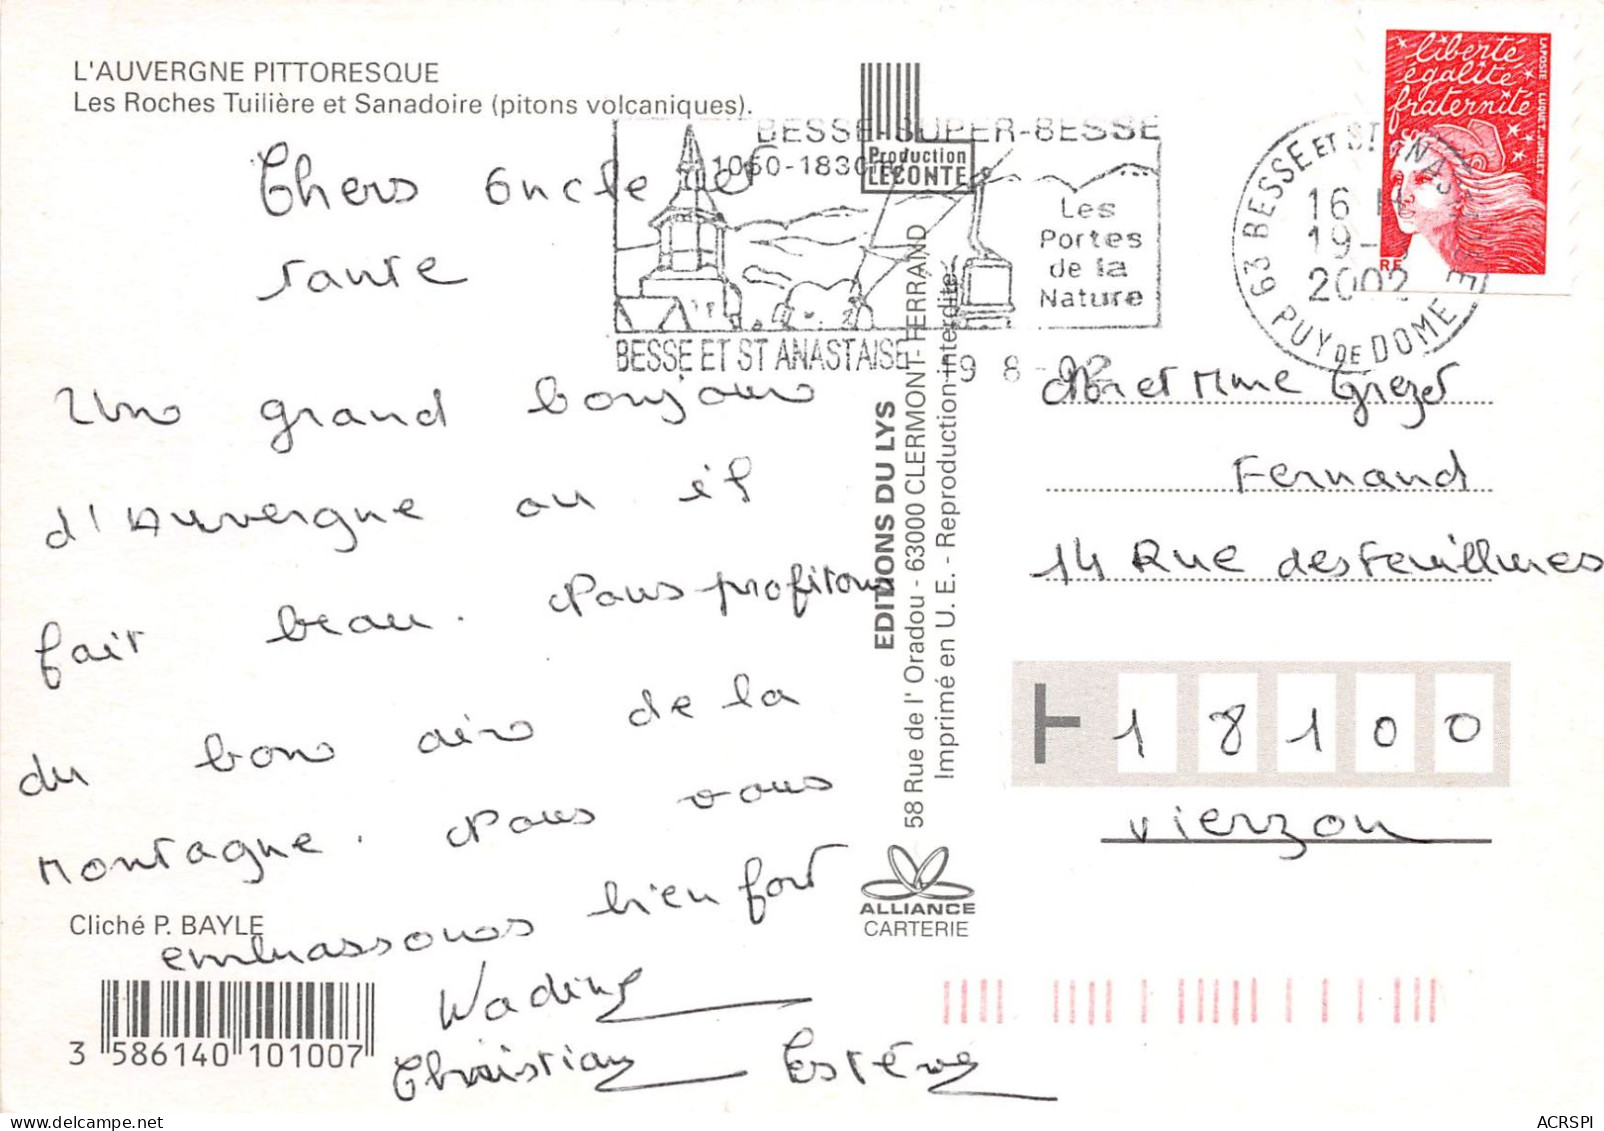 L'AUVERGNE PITTORESQUE
Les Roches Tuilière et Sanadoire (pitons volcaniques).
Chers Oncle et
Tante
Un grand bonjour
d'Auvergne ou il
fait beau. Nous profitons
du bon air de la
Montagne. Nous vous
embrassons bien fort
Nadine
Christian Estève
Cliché P. BAYLE
3 586140 101007
BESSE-SUPER-BESSE
1050-1830
Les
Portes
de la
Nature
BESSE ET ST ANASTAISE 19 8-02
Production
LECONTE
EDITIONS DU LYS
58 Rue de l' Oradou - 63000 CLERMONT-FERRAND
Imprimé en U. E. - Reproduction interdite
ALLIANCE
CARTERIE
liberté
égalité
fraternité
LA POSTE LUQUET-JUMELET
RF
63 BESSE ET ST ANASTAISE
16 H
19-8
2002
PUY DE DOME
Mr et Mme Grezet
Fernand
14 Rue des
18100
Vierzon
ACRSPI